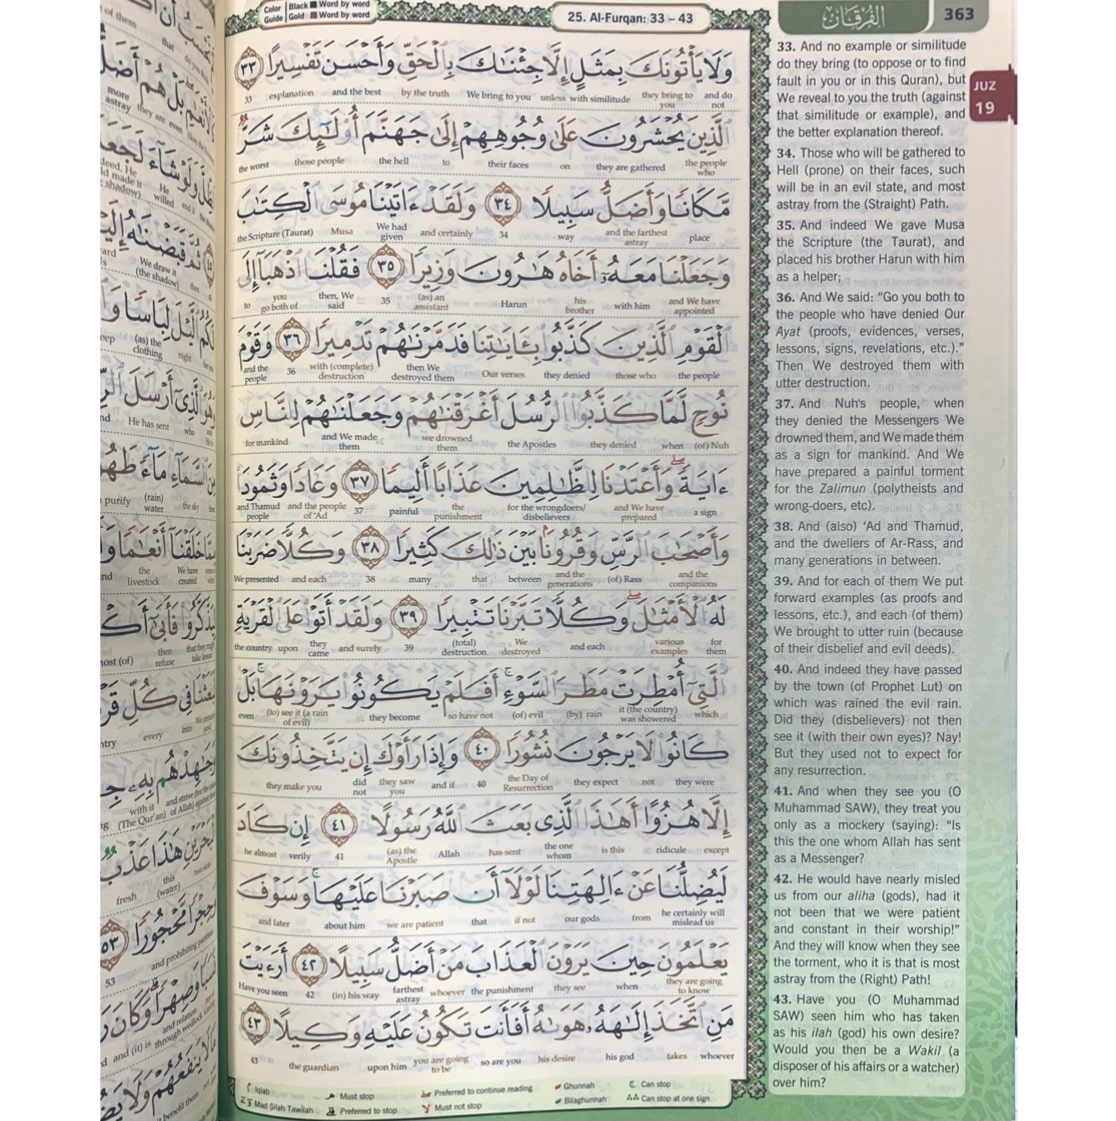 Color Guide
Black ■ Word by word
Gold ■ Word by word
25. Al-Furqan: 33 – 43
الفُرْقَان
363
JUZ 19
وَلَا يَأْتُونَكَ بِمَثَلٍ إِلَّا جِئْنَاكَ بِالْحَقِّ وَأَحْسَنَ تَفْسِيرًا ٣٣
and do not they bring to you with similitude unless We bring to you by the truth and the best explanation 33
الَّذِينَ يُحْشَرُونَ عَلَىٰ وُجُوهِهِمْ إِلَىٰ جَهَنَّمَ أُولَٰئِكَ شَرٌّ
the people who they are gathered on their faces to the hell those people the worst
مَّكَانًا وَأَضَلُّ سَبِيلًا ٣٤ وَلَقَدْ ءَاتَيْنَا مُوسَى الْكِتَٰبَ
place and the farthest astray way 34 and certainly We had given Musa the Scripture (Taurat)
وَجَعَلْنَا مَعَهُۥٓ أَخَاهُ هَٰرُونَ وَزِيرًا ٣٥ فَقُلْنَا اذْهَبَآ إِلَى
and We have appointed with him his brother Harun (as) an assistant 35 then, We said you go both of to
الْقَوْمِ الَّذِينَ كَذَّبُوا بِـَٔايَٰتِنَا فَدَمَّرْنَٰهُمْ تَدْمِيرًا ٣٦ وَقَوْمَ
the people those who they denied Our verses then We destroyed them with (complete) destruction 36 and the people
نُوحٍ لَّمَّا كَذَّبُوا الرُّسُلَ أَغْرَقْنَٰهُمْ وَجَعَلْنَٰهُمْ لِلنَّاسِ
(of) Nuh when they denied the Apostles we drowned them and We made them for mankind
ءَايَةً وَأَعْتَدْنَا لِلظَّٰلِمِينَ عَذَابًا أَلِيمًا ٣٧ وَعَادًا وَثَمُودَا
a sign and We have prepared for the wrongdoers/ disbelievers the punishment painful 37 and the people of 'Ad and Thamud people
وَأَصْحَٰبَ الرَّسِّ وَقُرُونًا بَيْنَ ذَٰلِكَ كَثِيرًا ٣٨ وَكُلًّا ضَرَبْنَا
and the companions (of) Rass and the generations between that many 38 and each We presented
لَهُ الْأَمْثَٰلَ وَكُلًّا تَبَّرْنَا تَتْبِيرًا ٣٩ وَلَقَدْ أَتَوْا عَلَى الْقَرْيَةِ
for them various examples and each We destroyed (total) destruction 39 and surely they came upon the country
الَّتِىٓ أُمْطِرَتْ مَطَرَ السَّوْءِ أَفَلَمْ يَكُونُوا يَرَوْنَهَا بَلْ
which it (the country) was showered (by) rain (of) evil so have not they become (to) see it (a rain of evil) even
كَانُوا لَا يَرْجُونَ نُشُورًا ٤٠ وَإِذَا رَأَوْكَ إِن يَتَّخِذُونَكَ
they were not they expect the Day of Resurrection 40 and if they saw you did not they make you
إِلَّا هُزُوًا أَهَٰذَا الَّذِى بَعَثَ اللَّهُ رَسُولًا ٤١ إِن كَادَ
except ridicule is this the one whom has sent Allah (as) the Apostle 41 verily he almost
لَيُضِلُّنَا عَنْ ءَالِهَتِنَا لَوْلَآ أَن صَبَرْنَا عَلَيْهَا وَسَوْفَ
he certainly will mislead us from our gods if not that we are patient about him and later
يَعْلَمُونَ حِينَ يَرَوْنَ الْعَذَابَ مَنْ أَضَلُّ سَبِيلًا ٤٢ أَرَءَيْتَ
they are going to know when they see the punishment whoever farthest astray (in) his way 42 Have you seen
مَنِ اتَّخَذَ إِلَٰهَهُۥ هَوَىٰهُ أَفَأَنتَ تَكُونُ عَلَيْهِ وَكِيلًا ٤٣
whoever takes his god his desire so are you you are going to be upon him the guardian 43
Iqlab
Must stop
Preferred to continue reading
Ghunnah
Can stop
Mad Silah Tawilah
Preferred to stop
Must not stop
Bilaghunnah
Can stop at one sign
33. And no example or similitude
do they bring (to oppose or to find
fault in you or in this Quran), but
We reveal to you the truth (against
that similitude or example), and
the better explanation thereof.
34. Those who will be gathered to
Hell (prone) on their faces, such
will be in an evil state, and most
astray from the (Straight) Path.
35. And indeed We gave Musa
the Scripture (the Taurat), and
placed his brother Harun with him
as a helper;
36. And We said: “Go you both to
the people who have denied Our
Ayat (proofs, evidences, verses,
lessons, signs, revelations, etc.).”
Then We destroyed them with
utter destruction.
37. And Nuh's people, when
they denied the Messengers We
drowned them, and We made them
as a sign for mankind. And We
have prepared a painful torment
for the Zalimun (polytheists and
wrong-doers, etc).
38. And (also) ‘Ad and Thamud,
and the dwellers of Ar-Rass, and
many generations in between.
39. And for each of them We put
forward examples (as proofs and
lessons, etc.), and each (of them)
We brought to utter ruin (because
of their disbelief and evil deeds).
40. And indeed they have passed
by the town (of Prophet Lut) on
which was rained the evil rain.
Did they (disbelievers) not then
see it (with their own eyes)? Nay!
But they used not to expect for
any resurrection.
41. And when they see you (O
Muhammad SAW), they treat you
only as a mockery (saying): “Is
this the one whom Allah has sent
as a Messenger?
42. He would have nearly misled
us from our aliha (gods), had it
not been that we were patient
and constant in their worship!”
And they will know when they see
the torment, who it is that is most
astray from the (Right) Path!
43. Have you (O Muhammad
SAW) seen him who has taken
as his ilah (god) his own desire?
Would you then be a Wakil (a
disposer of his affairs or a watcher)
over him?